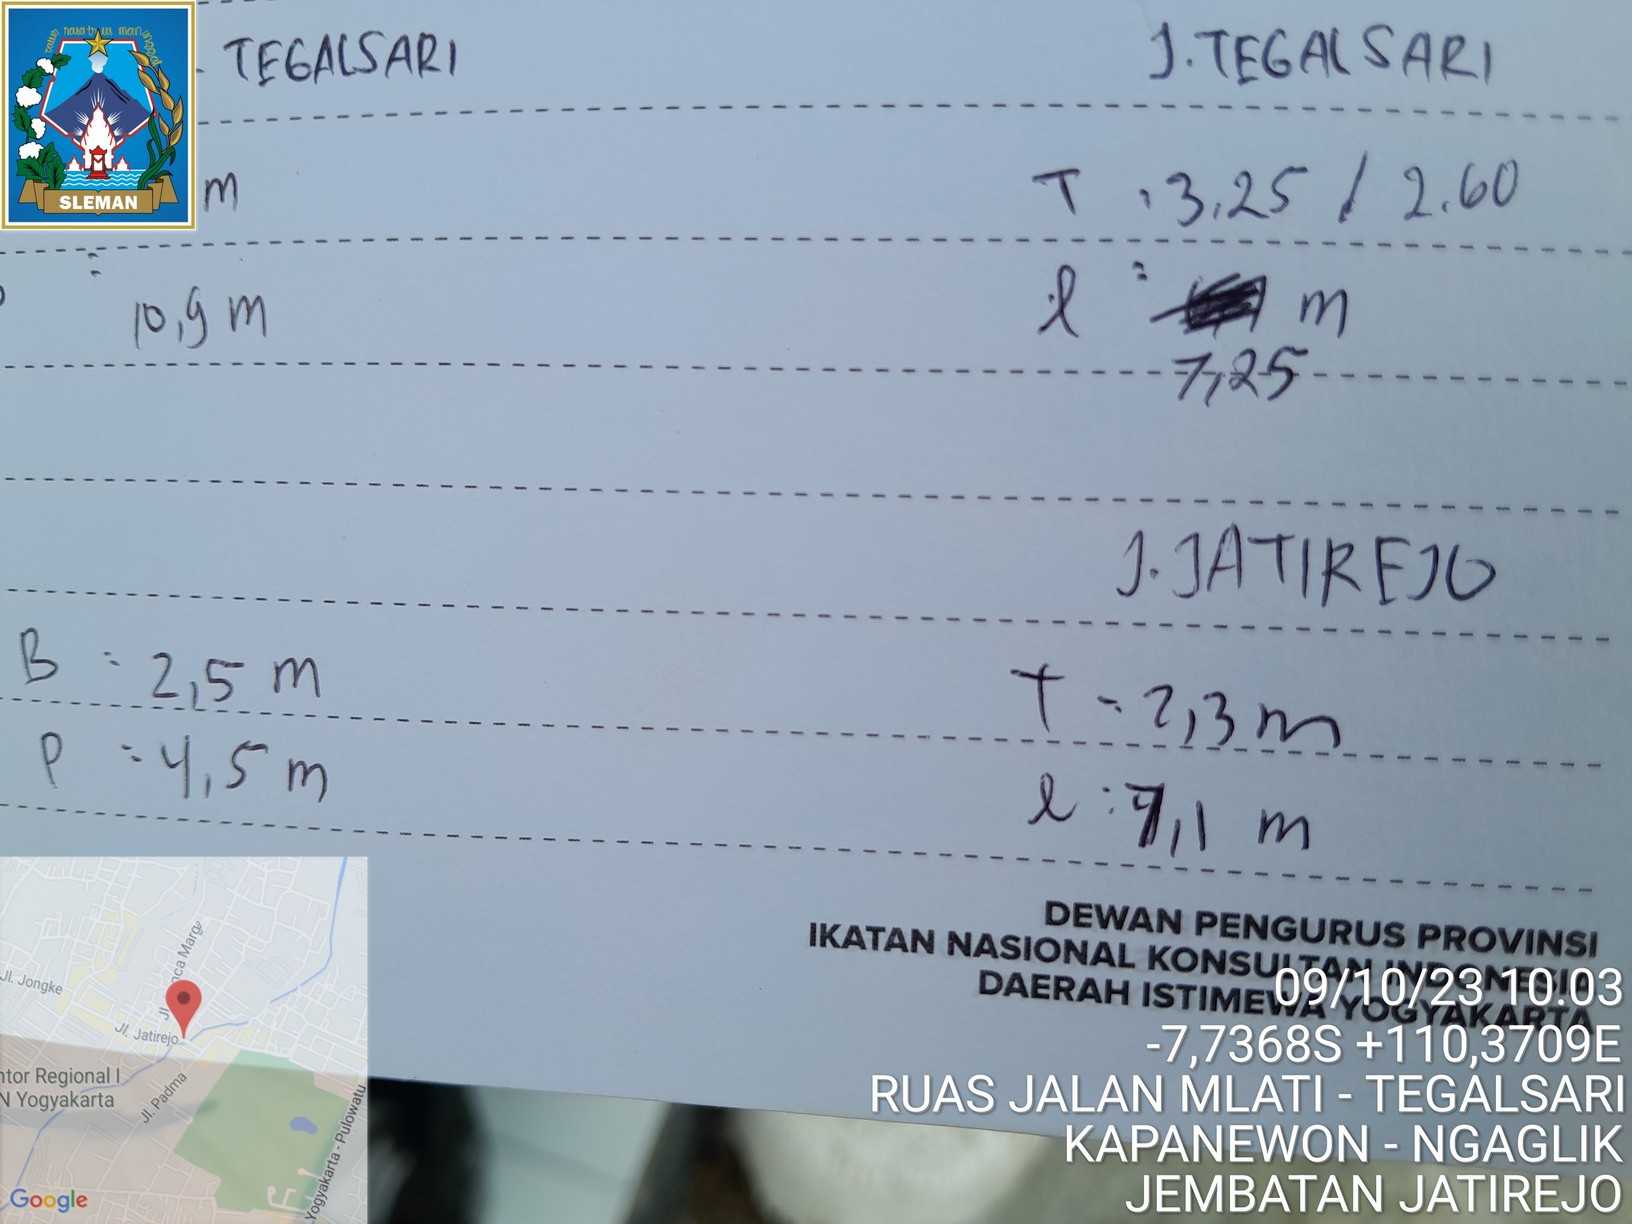 TEGALSARI
J. TEGALSARI
m
T : 3,25 / 2.60
: 10,9 m
l : m
7,25
J. JATIREJO
B : 2,5 m
T = 2,3 m
P : 4,5 m
l : 7,1 m
DEWAN PENGURUS PROVINSI
IKATAN NASIONAL KONSULTAN INDONESIA
DAERAH ISTIMEWA YOGYAKARTA
09/10/23 10.03
-7,7368S +110,3709E
RUAS JALAN MLATI - TEGALSARI
KAPANEWON - NGAGLIK
JEMBATAN JATIREJO
SLEMAN
Jl. Jongke
Jl. Jatirejo
ntor Regional I
N Yogyakarta
Jl. Padma
Yogyakarta - Pulowatu
Google